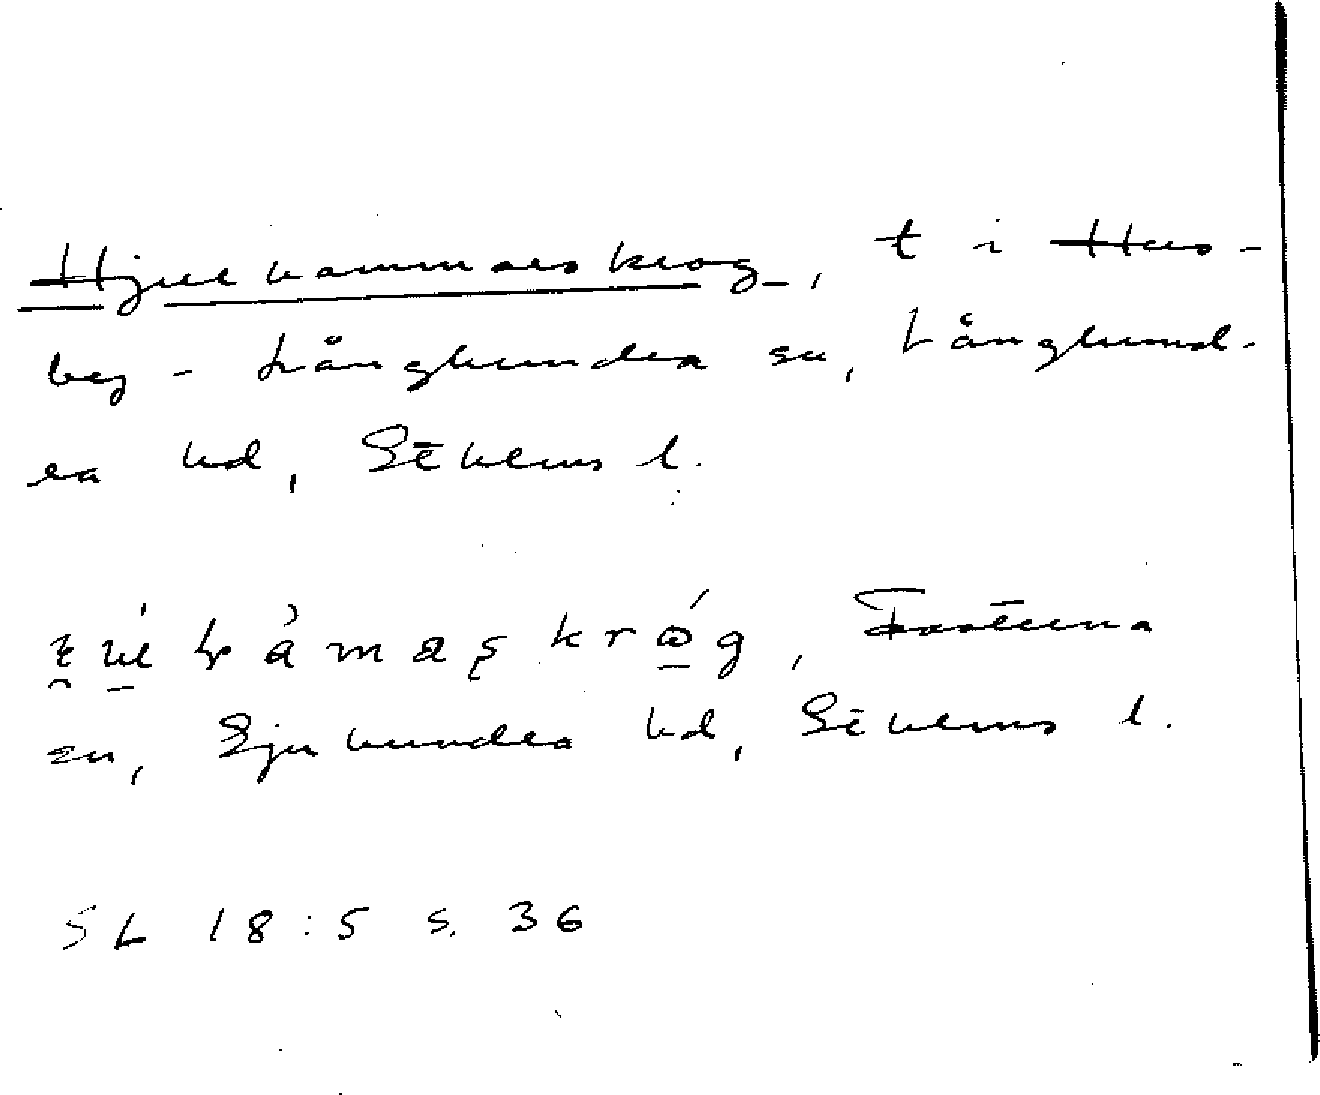 Hjulhammarskrog, t i Hus-
by - Långhundra sn, Långhund-
ra hd, Sthlms l.
kråg, Fasterna
sn, Sjuhundra hd, Sthlms l.
SL 18:5 s. 36